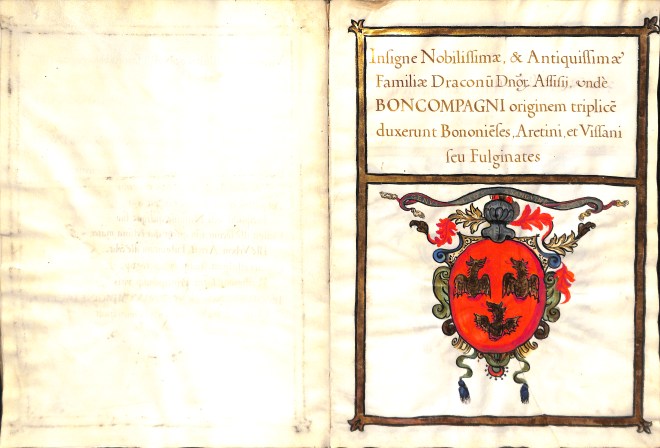 Insigne Nobilissimæ, & Antiquissimæ
Familiæ Draconū Dnōr. Assisij, vndè
BONCOMPAGNI originem triplicē
duxerunt Bononiēses, Aretini, et Vissani
seu Fulginates